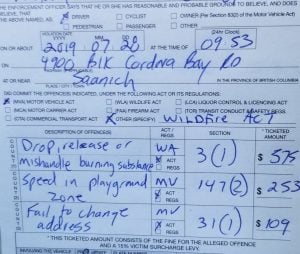 THE ENFORCEMENT OFFICER SAYS THAT HE OR SHE HAS REASONABLE AND PROBABLE GROUNDS TO BELIEVE, AND DOES
BELIEVE, THAT
THE ABOVE NAMED AS A DRIVER CYCLIST OWNER (Per Section 83(2) of the Motor Vehicle Act)
PEDESTRIAN PASSENGER OTHER
VIOLATION DATE (24hr Clock)
ON OR ABOUT 2019 07 20 AT THE TIME OF 09:53
4900 Blk Cordova Bay RD
AT OR NEAR Saanich IN THE PROVINCE OF BRITISH COLUMBIA
DID COMMIT THE OFFENCE(S) INDICATED, UNDER THE FOLLOWING ACT OR ITS REGULATIONS:
(MVA) MOTOR VEHICLE ACT (WLA) WILDLIFE ACT (LCA) LIQUOR CONTROL & LICENCING ACT
(MCA) MOTOR CARRIER ACT (FAA) FIREARM ACT (TCR) TRANSIT CONDUCT & SAFETY REGS.
(CTA) COMMERCIAL TRANSPORT ACT OTHER (SPECIFY) WILDFIRE ACT
DESCRIPTION OF OFFENCE(S) ACT / REGS SECTION * TICKETED AMOUNT
Drop, release or WA 3(1) $ 575
mishandle burning substance ACT REGS
Speed in playground MV 147(2) $ 253
zone ACT REGS
Fail to change MV 31(1) $ 109
address ACT REGS
* THIS TICKETED AMOUNT CONSISTS OF THE FINE FOR THE ALLEGED OFFENCE
AND A 15% VICTIM SURCHARGE LEVY.